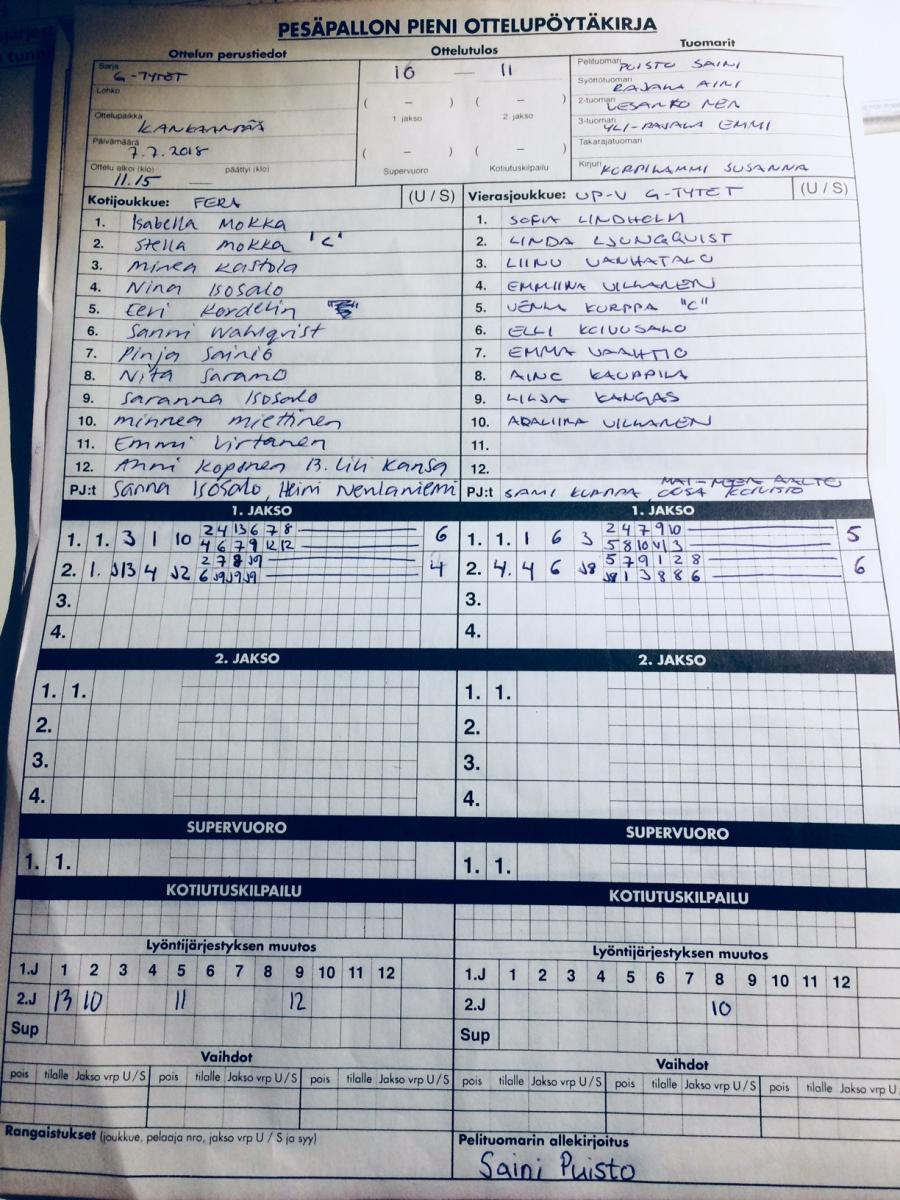 PESÄPALLON PIENI OTTELUPÖYTÄKIRJA
Ottelun perustiedot
Ottelutulos
Tuomarit
Sarja G-TYTET
10 — 11
Pelituomari PUISTO SAINI
Lohko
( – ) ( – )
Syöttötuomari RAJALA AINI
1. jakso 2. jakso
2-tuomari
Ottelupaikka KANKAANPÄÄ
3-tuomari YLI-RAJALA EMMI
Päivämäärä 7.7.2018
( – ) ( – )
Takarajatuomari
Ottelu alkoi (klo) 11.15 — päättyi (klo)
Supervuoro Kotiutuskilpailu
Kirjuri KORPILAMMI SUSANNA
Kotijoukkue: FERA (U / S)
1. Isabella Mokka
2. Stella Mokka "C"
3. Minea Kastola
4. Nina Isosalo
5. Eeri Kordelin
6. Sanni Wahlqvist
7. Pinja Sainio
8. Nita Saramo
9. Saranna Isosalo
10. minnea miettinen
11. Emmi Virtanen
12. Anni Koponen 13. Lili Kansa
PJ:t Sanna Isosalo, Heini Nenlaniemi
Vierasjoukkue: UP-V G-TYTET (U / S)
1. SOFIA LINDHOLM
2. LINDA LJUNGQUIST
3. LIINU VANHATALO
4. EMMIINA VILKANEN
5. VENLA KURPPA "C"
6. ELLI KOIVUSALO
7. EMMA VAAHTIO
8. AINO KAUPPILA
9. LILJA KANGAS
10. ADALIINA VILKANEN
11.
12.
PJ:t SAMI KURPPA,
1. JAKSO
1. 1. 3 1 10 2 4 13 6 7 8 6
4 6 7 9 12 12
2. 1. J13 4 J2 2 7 8 J9 4
6 J9 J9 J9
3.
4.
1. JAKSO
1. 1. 1 6 3 2 4 7 9 10 5
5 8 10 3
2. 4. 4 6 J8 5 7 9 1 2 8 6
J8 1 3 8 8 6
3.
4.
2. JAKSO
1. 1.
2.
3.
4.
2. JAKSO
1. 1.
2.
3.
4.
SUPERVUORO
1. 1.
SUPERVUORO
1. 1.
KOTIUTUSKILPAILU
KOTIUTUSKILPAILU
Lyöntijärjestyksen muutos
1.J 1 2 3 4 5 6 7 8 9 10 11 12
2.J 13 10 11 12
Sup
Lyöntijärjestyksen muutos
1.J 1 2 3 4 5 6 7 8 9 10 11 12
2.J 10
Sup
Vaihdot
pois tilalle Jakso vrp U / S pois tilalle Jakso vrp U / S pois tilalle Jakso vrp U / S
Vaihdot
pois tilalle Jakso vrp U / S pois tilalle Jakso vrp U / S pois tilalle Jakso vrp U
Rangaistukset (joukkue, pelaaja nro, jakso vrp U / S ja syy)
Pelituomarin allekirjoitus
Saini Puisto